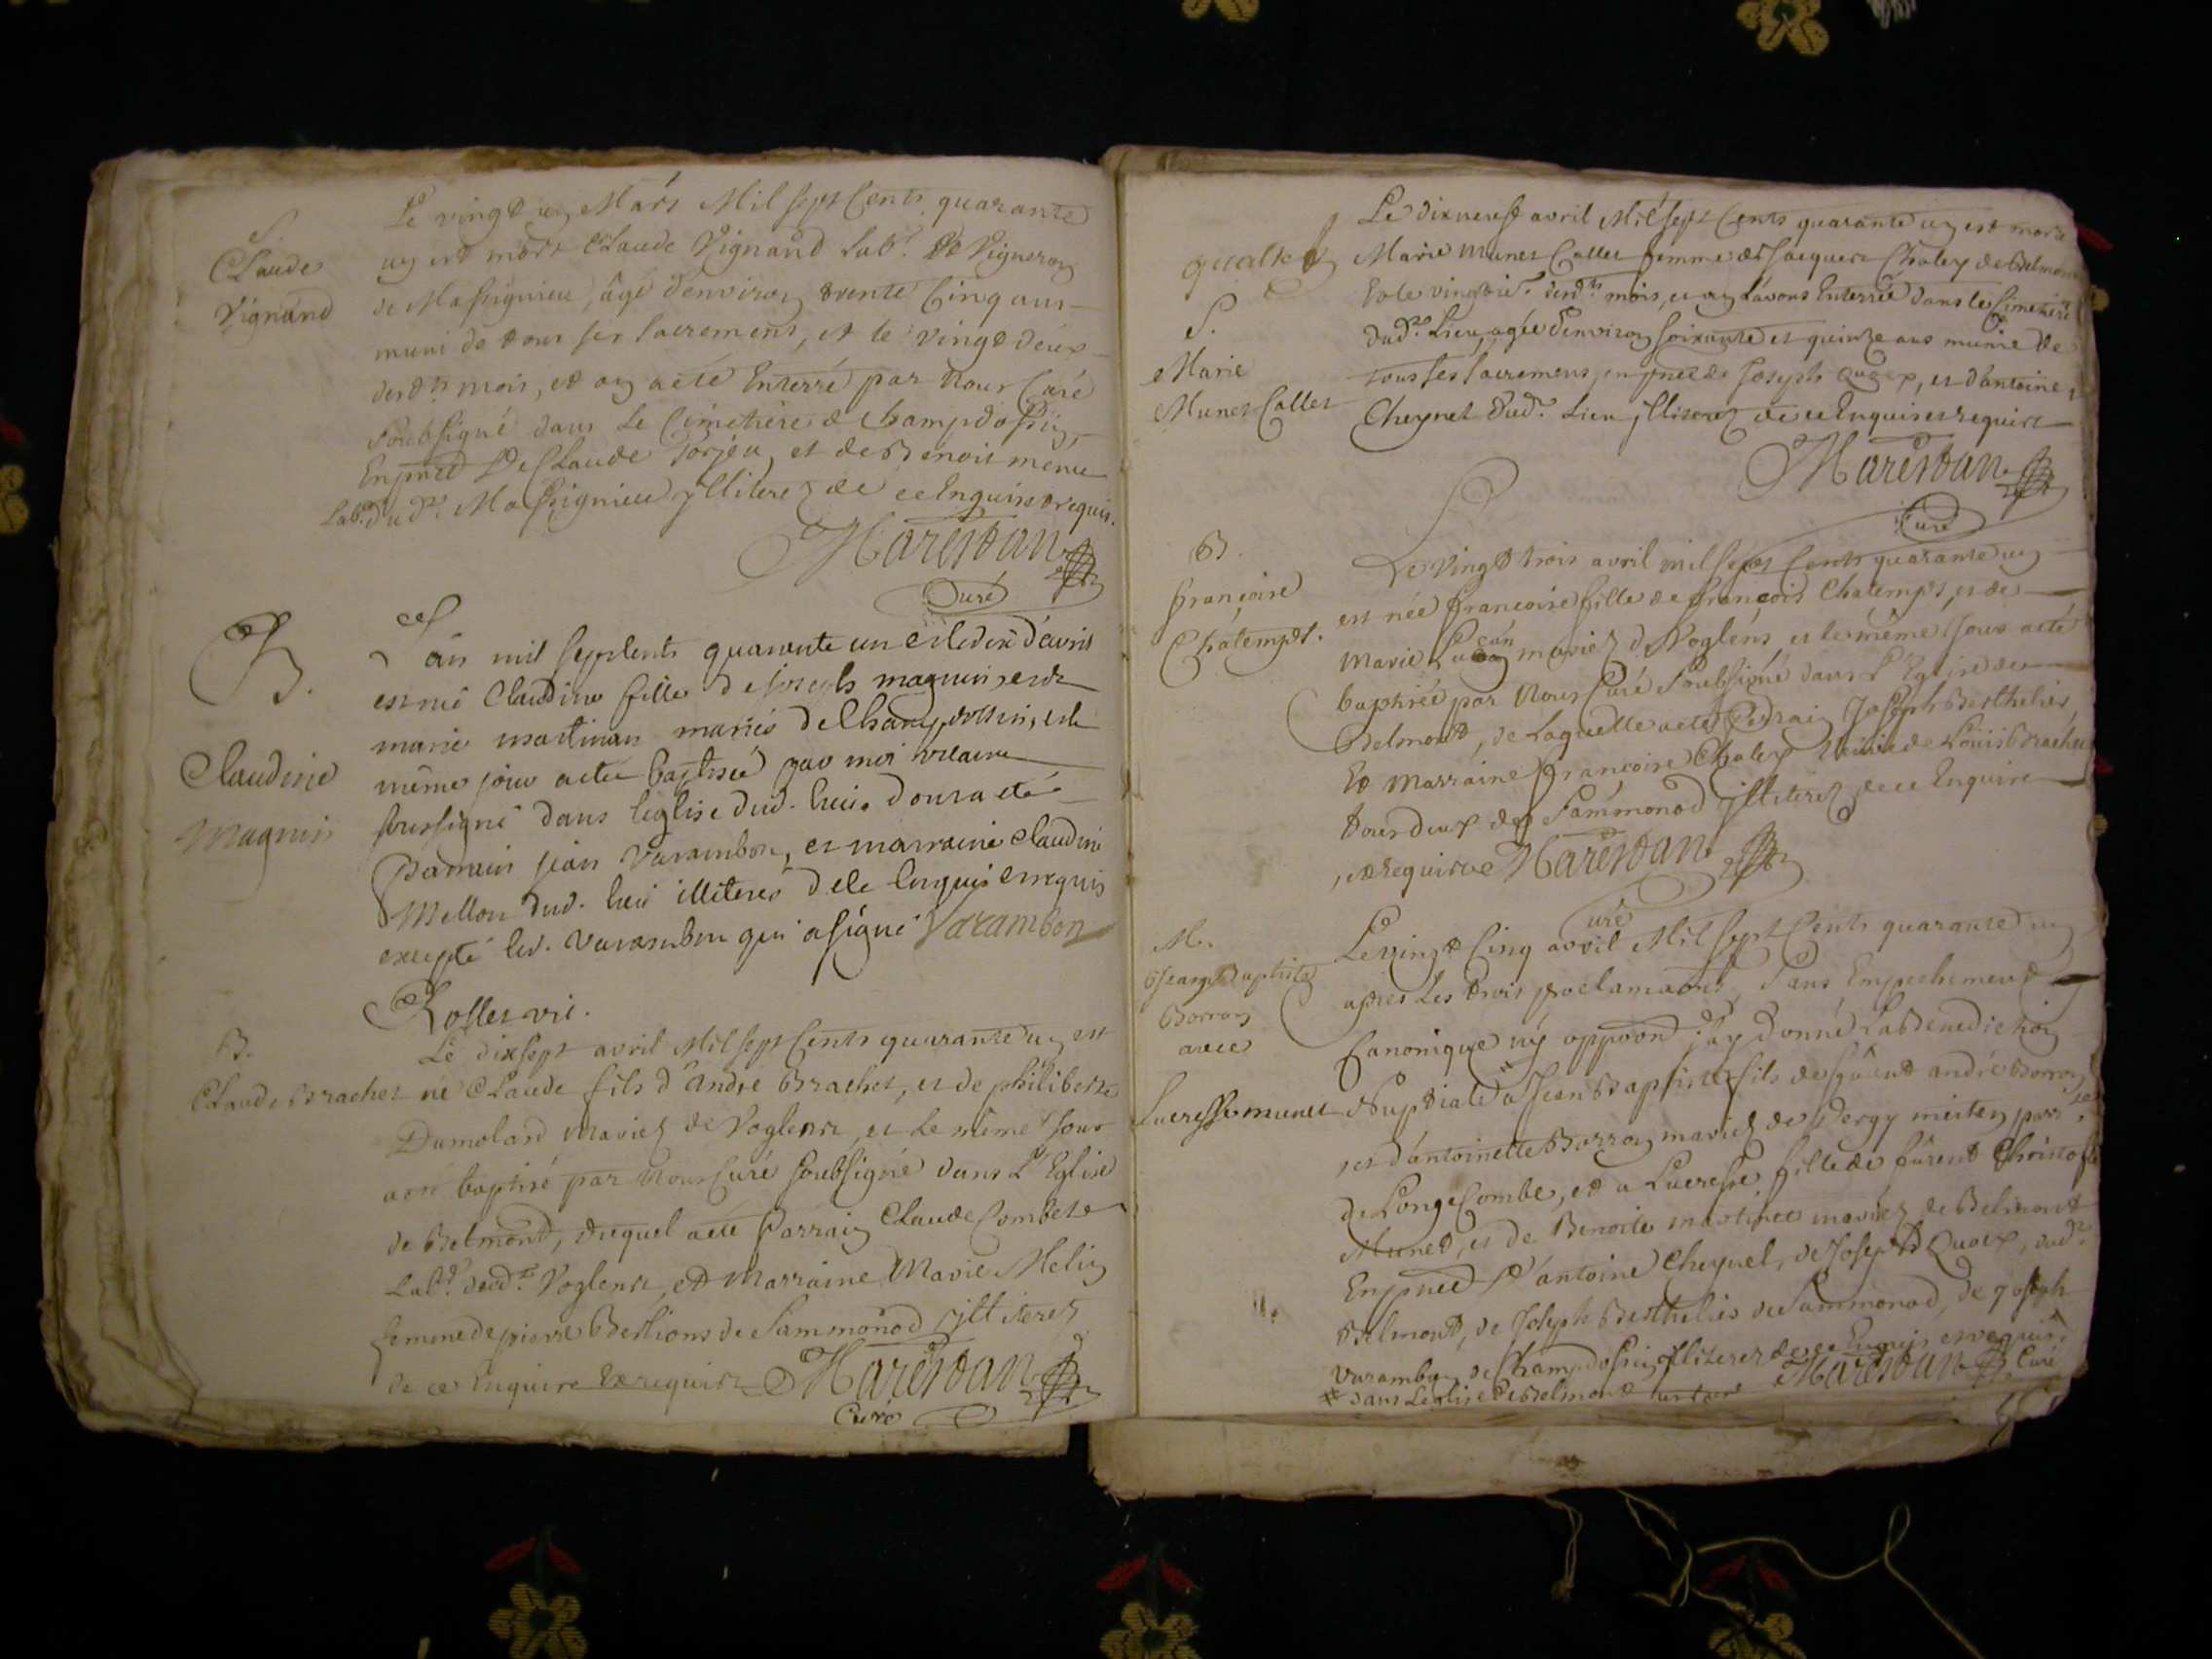 S.
Claude
Vignand
Le vingt un Mars Mil sept Cents quarante
un est mort Claude Vignand Labr. et Vigneron
de Massignieu, âgé d'environ trente Cinq ans
muni de tous ses sacremens, et le vingt deux
dud. mois, et an a été Enterré par Nous Curé
soubsigné dans Le Cimetière de Champdossin,
En pnce De Claude Torjeu, et de Benoit
Labr. dud. Massignieu illiterez de ce Enquis et requis.
Marestan
Curé
B.
Claudine
Magnin
L'an mil sept cents quarante un et le dix d'avril
est née Claudine fille de joseph magnin et de
marie martinan mariés de Champdossin, et le
même jour a été baptisée par moi vicaire
soussigné dans l'église dud. lieu. dont a été
Parrain jean Varambon, et marraine Claudine
Mellon dud. lieu illiterés de ce Enquis et requis
excepté led. Varambon qui a signé Varambon
Rosset vic.
B.
Claude Brachet
Le dix sept avril Mil sept Cents quarante un est
né Claude fils d'André Brachet, et de philiberte
Dumolard mariez de Voglens, et le même Jour
a été baptisé par Nous Curé soubsigné dans L'Eglise
de Belmont, duquel a été Parrain Claude Combet
Labr. dud. Voglens, et Marraine Marie Melin
femme de pierre Berlions de Sammonod illiterez
de ce Enquis et requis Marestan
Curé
S.
Marie
Munet Callet
Le dix neuf avril Mil sept Cents quarante un est morte
Marie Munet Callet femme de Jacques Chaley de Belmont
Et le vingtie. dud. mois, et an L'avons Enterrée dans le Cimetière
dud. Lieu, agée d'environ soixante et quinze ans munie de
tous ses sacremens, en pnce de Joseph Quaex, et d'antoine
Cheynel dud. Lieu illiterez de ce Enquis et requis
Marestan
Curé
B.
françoise
Chatempt.
Le Vingt trois avril mil sept Cents quarante un
est née françoise fille de françois Chatempt, et de
Marie mariez de Voglens, et le même Jour a été
baptisée par Nous Curé soubsigné dans L'Eglise de
Belmont, de Laquelle a été Parrain Joseph Berthelier,
Et Marraine françoise Chaley veuve de Louis Brachet
tous deux de Sammonod illiterez de ce Enquis
et requis Marestan
Curé
M.
Jean Baptiste
Borron
avec
Lucresse munet
Le vingt Cinq avril Mil sept Cents quarante un
apres Les trois proclamaons, sans Empechement
Canonique ny opposon j'ay donné La Benediction
Nuptiale a Jean Baptiste fils de andré Borron
et d'antoinette Borron mariez de
de Longecombe, et a Lucresse fille de Christofle
Munet, et de Benoite martinet mariez de Belmont
En pnce D'antoine Cheynel, de Joseph Quaex, dud.
Belmont, de Joseph Berthelier de Sammonod, de joseph
Varambon de Champdossin illiterez de ce Enquis et requis.
Marestan Curé
# dans L'eglise de Belmont